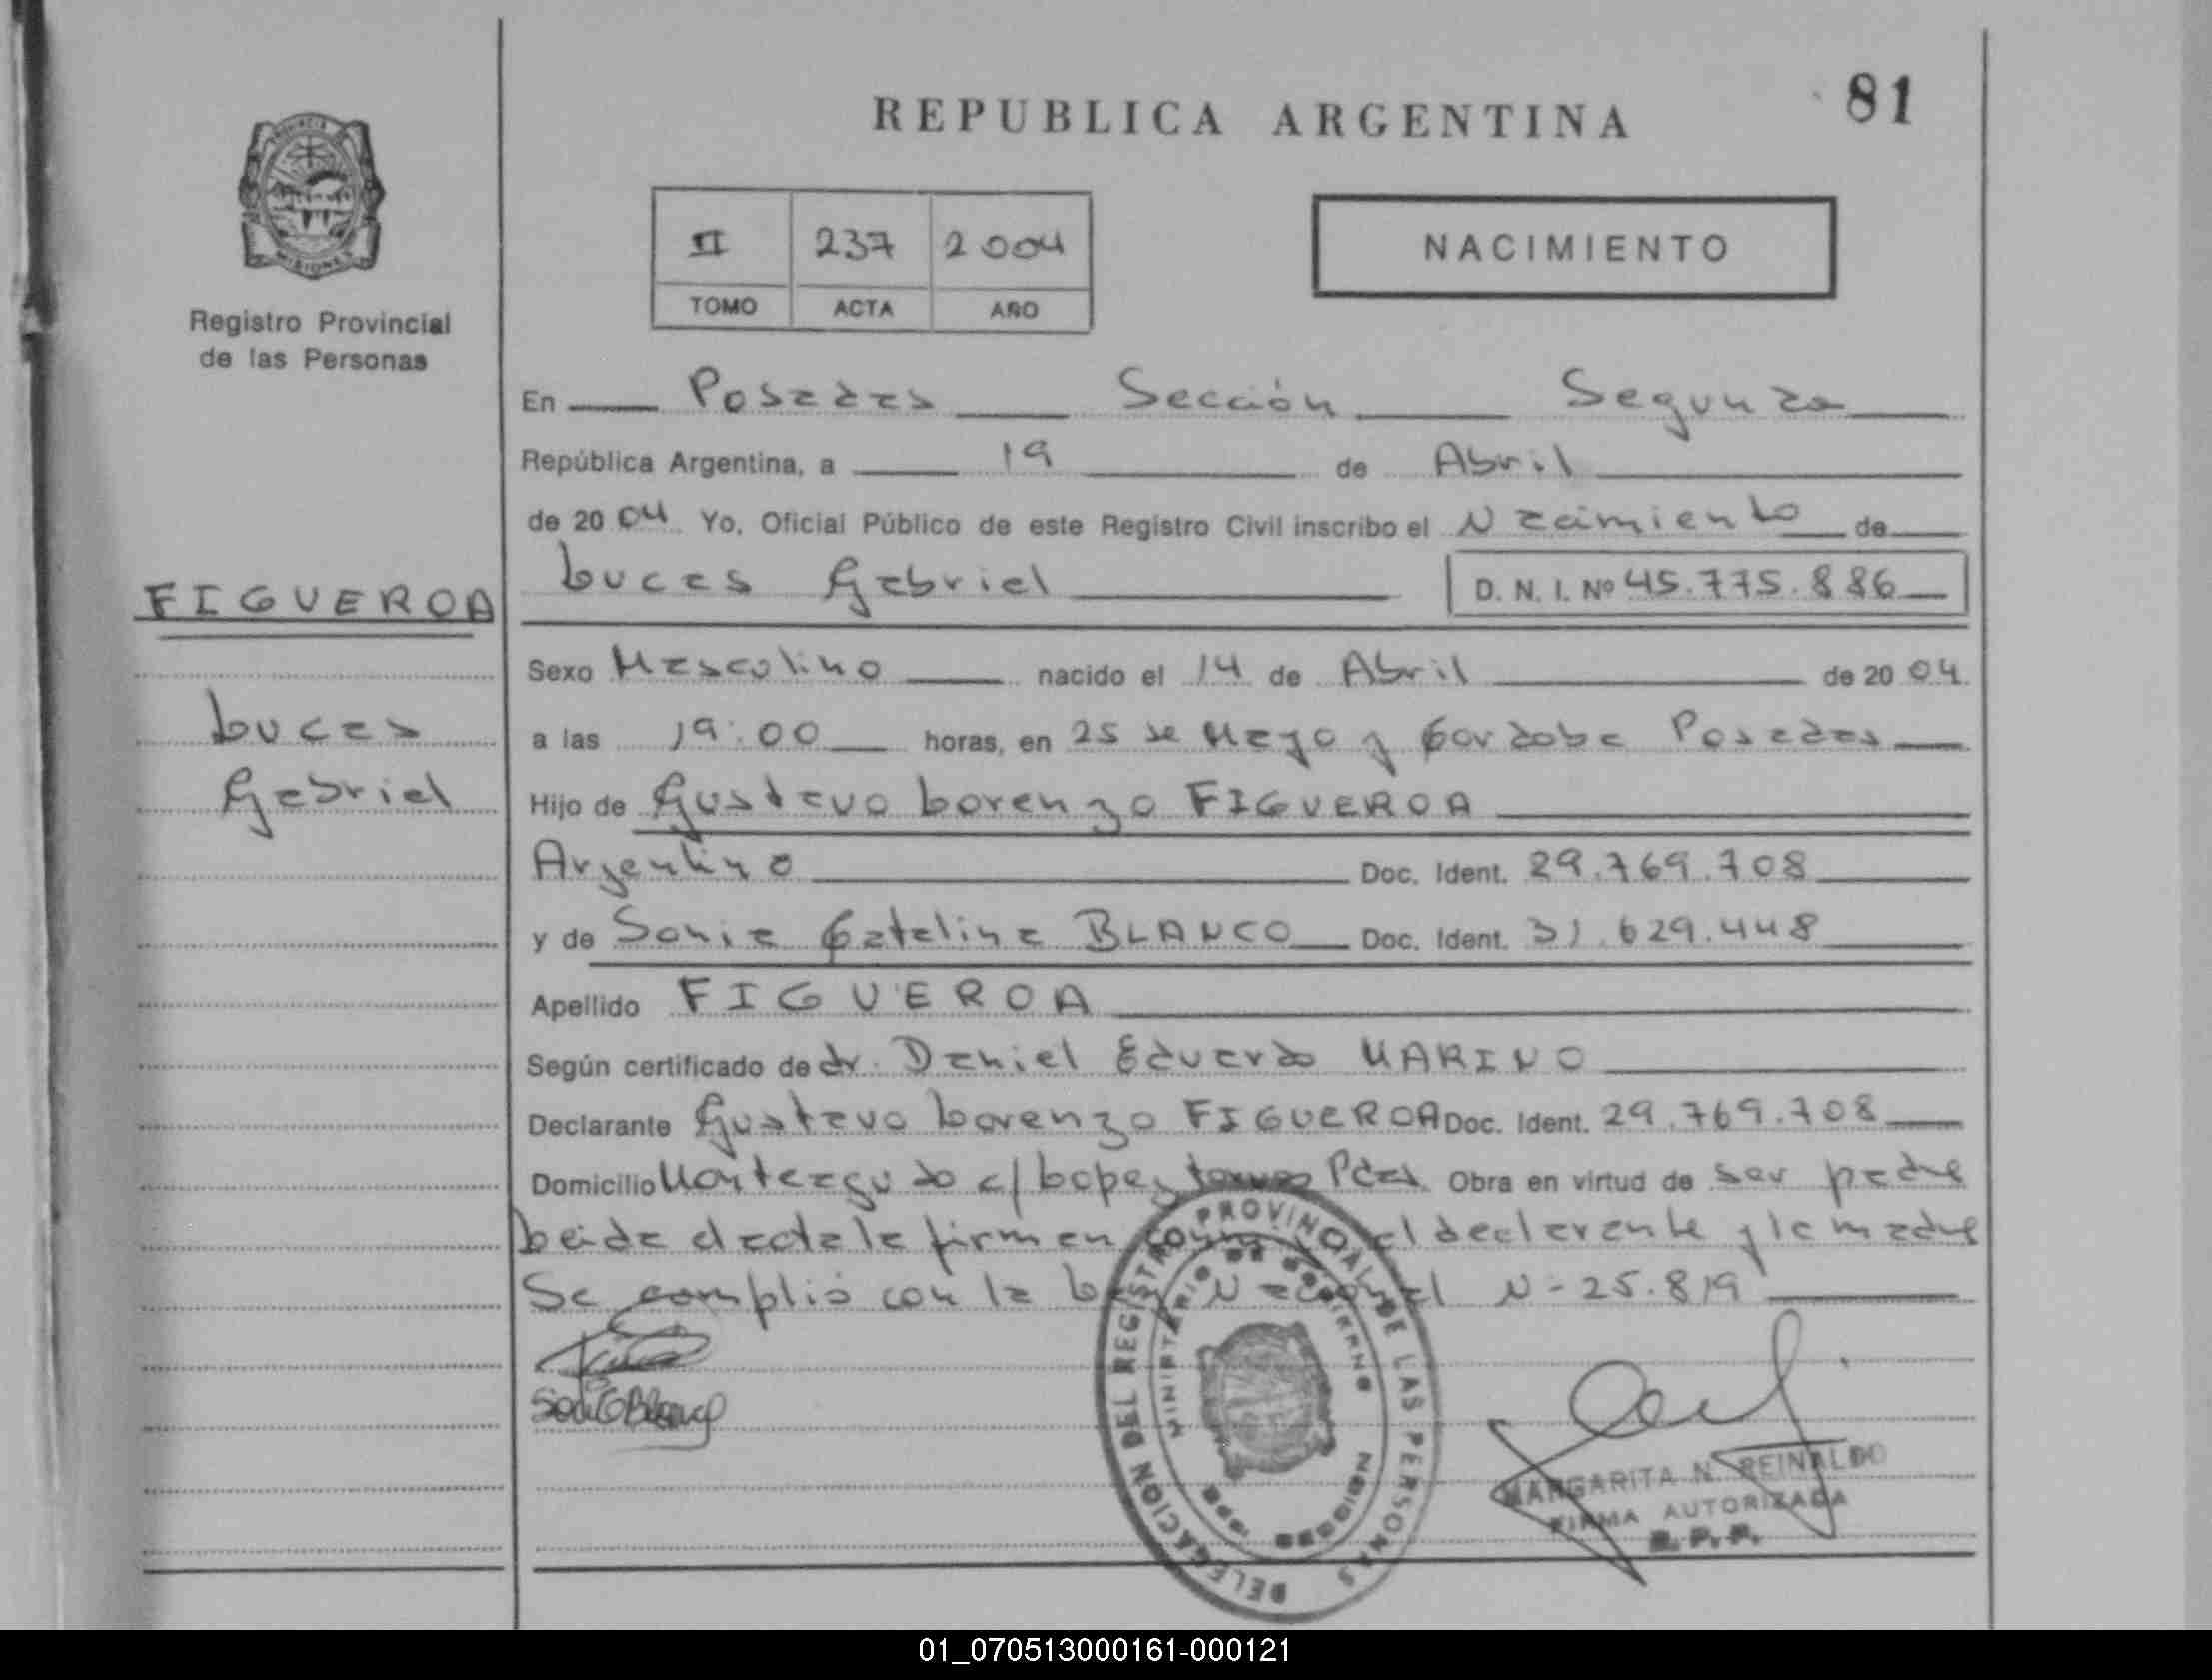 REPUBLICA ARGENTINA
81
PROVINCIA
MISIONES
Registro Provincial
de las Personas
II 237 2004
TOMO ACTA AÑO
NACIMIENTO
En Posadas Sección Segunda
República Argentina, a 19 de Abril
de 2004 Yo, Oficial Público de este Registro Civil inscribo el Nacimiento de
Lucas Gabriel D. N. I. Nº 45.775.886
FIGUEROA
Lucas
Gabriel
Sexo Masculino nacido el 14 de Abril de 2004.
a las 19:00 horas, en 25 de Mayo y Cordoba Posadas
Hijo de Gustavo Lorenzo FIGUEROA
Argentino Doc. Ident. 29.769.708
y de Sonia Catalina BLANCO Doc. Ident. 31.629.448
Apellido FIGUEROA
Según certificado de dr. Daniel Eduardo MARINO
Declarante Gustavo Lorenzo FIGUEROA Doc. Ident. 29.769.708
Domicilio Monteagudo c/ Lope y Pdas. Obra en virtud de ser padre
Leida el acta la firman el declarante y la madre
Se complió con la Ley Nacional N- 25.819
DELEGACION DEL REGISTRO PROVINCIAL DE LAS PERSONAS
MINISTERIO DE GOBIERNO
MISIONES
MARGARITA N. REINALDO
FIRMA AUTORIZADA
R. P. P.
01_070513000161-000121